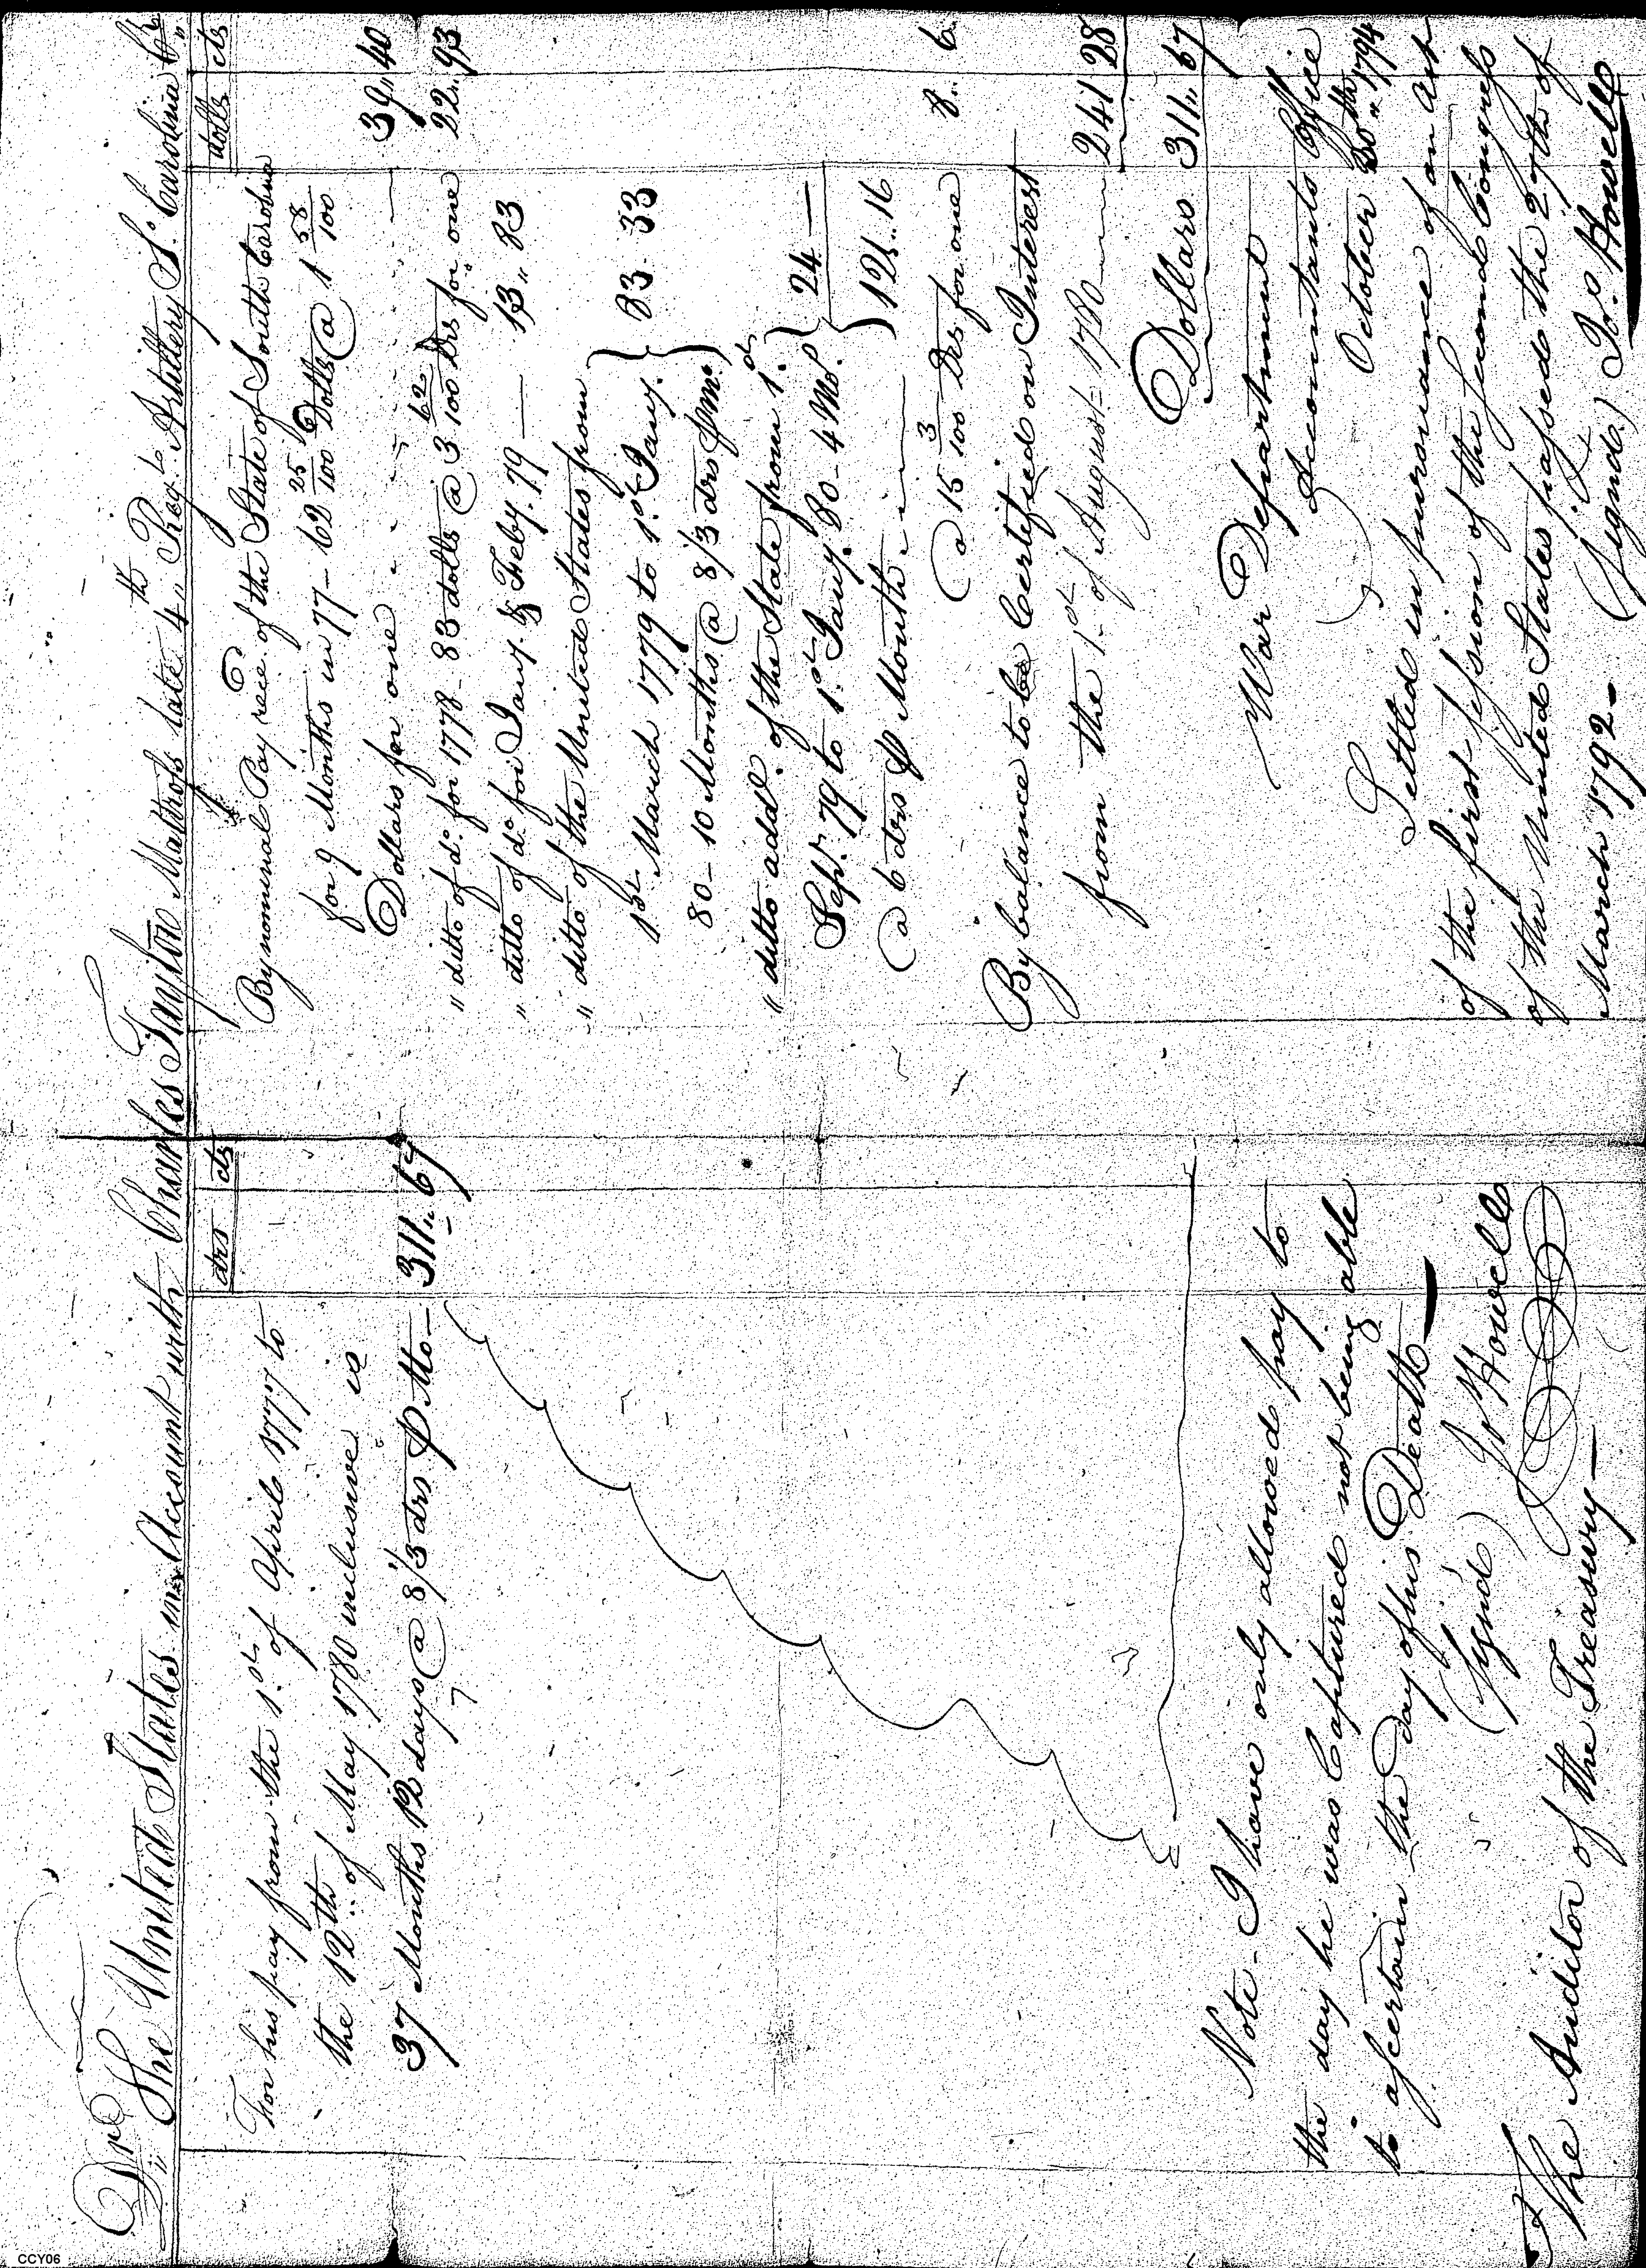 Dr. The United States in Account with Charles Taylor Matross late 4th Regt. Artillery So. Carolina Cr.
drs cts
For his pay from the 1st of April 1777 to
the 12th of May 1780 inclusive is
37 Months 12 days @ 8 1/3 drs P Mo— 311.. 67
Note— I have only allowed pay to
the day he was Captured not being able
to ascertain the day of his Death—
(Signd) Jo Howell
The Auditor of the Treasury—
dolls cts
By nominal Pay rece. of the State of South Carolina
for 9 Months in 77— 62 25/100 Dolls @ 1 58/100
Dollars for one 39.. 40
" ditto of do. for 1778— 83 dolls @ 3 62/100 Drs for one 22.. 93
" ditto of do for Jany. & Feby. 79 — 13.. 83
" ditto of the United States from
1st March 1779 to 1st Jany.
80— 10 Months @ 8 1/3 drs P mo. } 83. 33
" ditto addl. of the State from 1st
Sepr. 79 to 1st Jany. 80— 4 Mo.
@ 6 drs P Month } 24 —
121.. 16
@ 15 3/100 Drs for one 8.. 6
By balance to be Certified on Interest
from the 1st of August 1780 241 28
Dollars 311.. 67
War Department
Accountants Office
October 30th 1794
Settled in pursuance of an Act
of the first session of the second Congress
of the United States passed the 27th of
March 1792—
(Signd.) Jo. Howell
CCY06